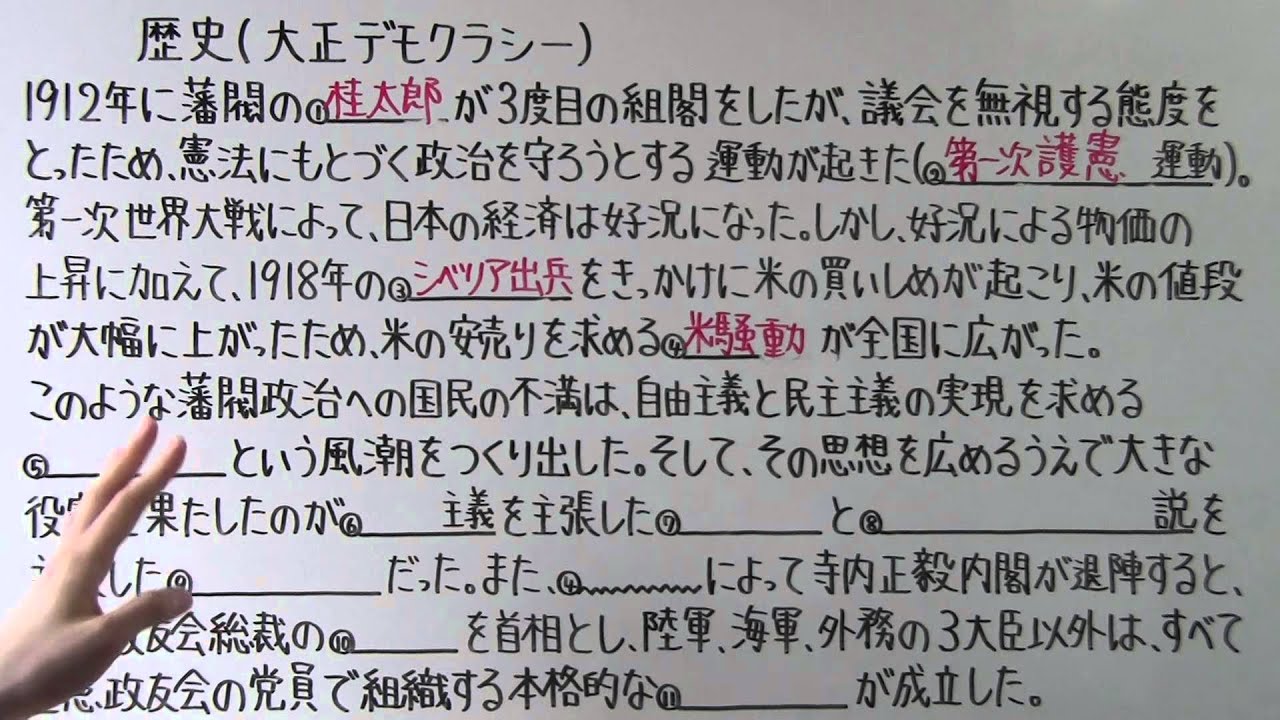 歴史(大正デモクラシー)
1912年に藩閥の①桂太郎が3度目の組閣をしたが、議会を無視する態度を
とったため、憲法にもとづく政治を守ろうとする運動が起きた(②第一次護憲 運動)。
第一次世界大戦によって、日本の経済は好況になった。しかし、好況による物価の
上昇に加えて、1918年の③シベリア出兵をきっかけに米の買いしめが起こり、米の値段
が大幅に上がったため、米の安売りを求める④米騒動が全国に広がった。
このような藩閥政治への国民の不満は、自由主義と民主主義の実現を求める
⑤という風潮をつくり出した。そして、その思想を広めるうえで大きな
役 果たしたのが⑥ 主義を主張した⑦と⑧ 説を
した⑨だった。また、④によって寺内正毅内閣が退陣すると、
政友会総裁の⑩を首相とし、陸軍、海軍、外務の3大臣以外は、すべて
政友会の党員で組織する本格的な⑪が成立した。